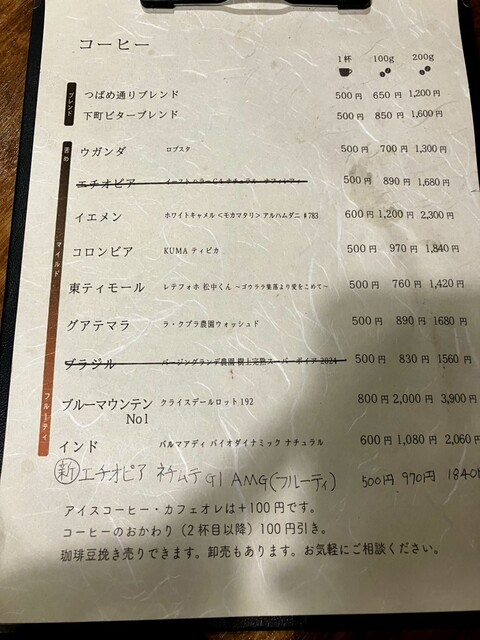 コーヒー
1杯 100g 200g
ブレンド
つばめ通りブレンド 500円 650円 1,200円
下町ビターブレンド 500円 850円 1,600円
苦め
ウガンダ ロブスタ 500円 700円 1,300円
エチオピア イーストハラー G4 ナチュラル 500円 890円 1,680円
イエメン ホワイトキャメル<モカマタリ> アルハムダニ #783 600円 1,200円 2,300円
コロンビア KUMA ティピカ 500円 970円 1,840円
マイルド
東ティモール レテフォホ 松中くん 〜ゴウララ集落より愛をこめて〜 500円 760円 1,420円
グアテマラ ラ・クプラ農園ウォッシュド 500円 890円 1680円
ブラジル バージングランデ農園 樹上完熟スーパーボイア 2024 500円 830円 1560円
フルーティ
ブルーマウンテン No1 クライスデールロット192 800円 2,000円 3,900円
インド バルマアディ バイオダイナミック ナチュラル 600円 1,080円 2,060円
新 エチオピア ネチムテ G1 AMG(フルーティ) 500円 970円 1840
アイスコーヒー・カフェオレは+100円です。
コーヒーのおかわり(2杯目以降)100円引き。
珈琲豆挽き売りできます。卸売もあります。お気軽にご相談ください。